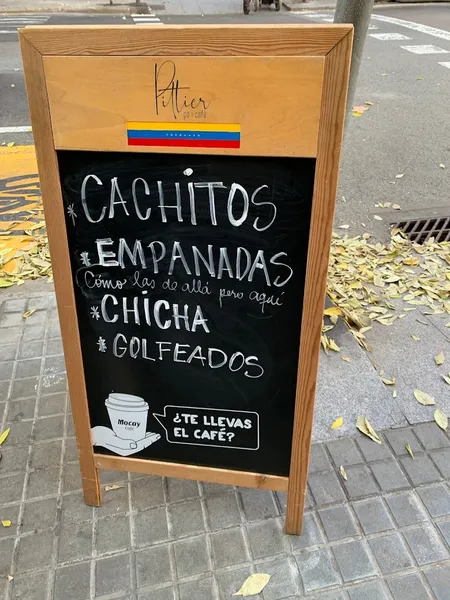 Pittier
pa' i café
* CACHITOS
* EMPANADAS
Cómo las de allá pero aquí
* CHICHA
* GOLFEADOS
Mocay
CAFFÈ
¿TE LLEVAS
EL CAFÉ?